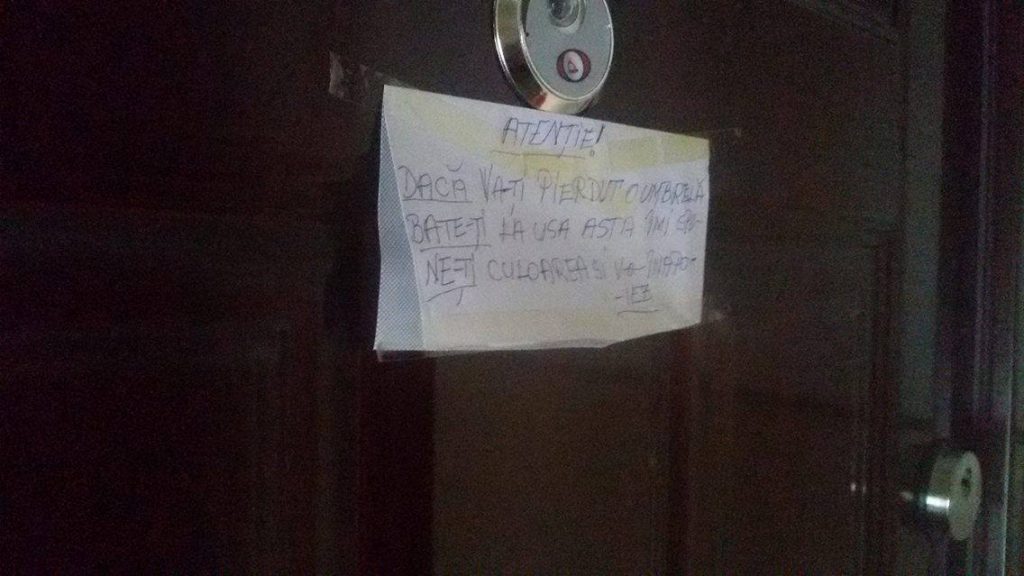 ATENȚIE!
DACĂ VA-TI PIERDUT O UMBRELA
BATE-ȚI LA USA ASTA ÎMI SPU-
NE-ȚI CULOAREA SI V-O ÎNAPO-
-IEZ